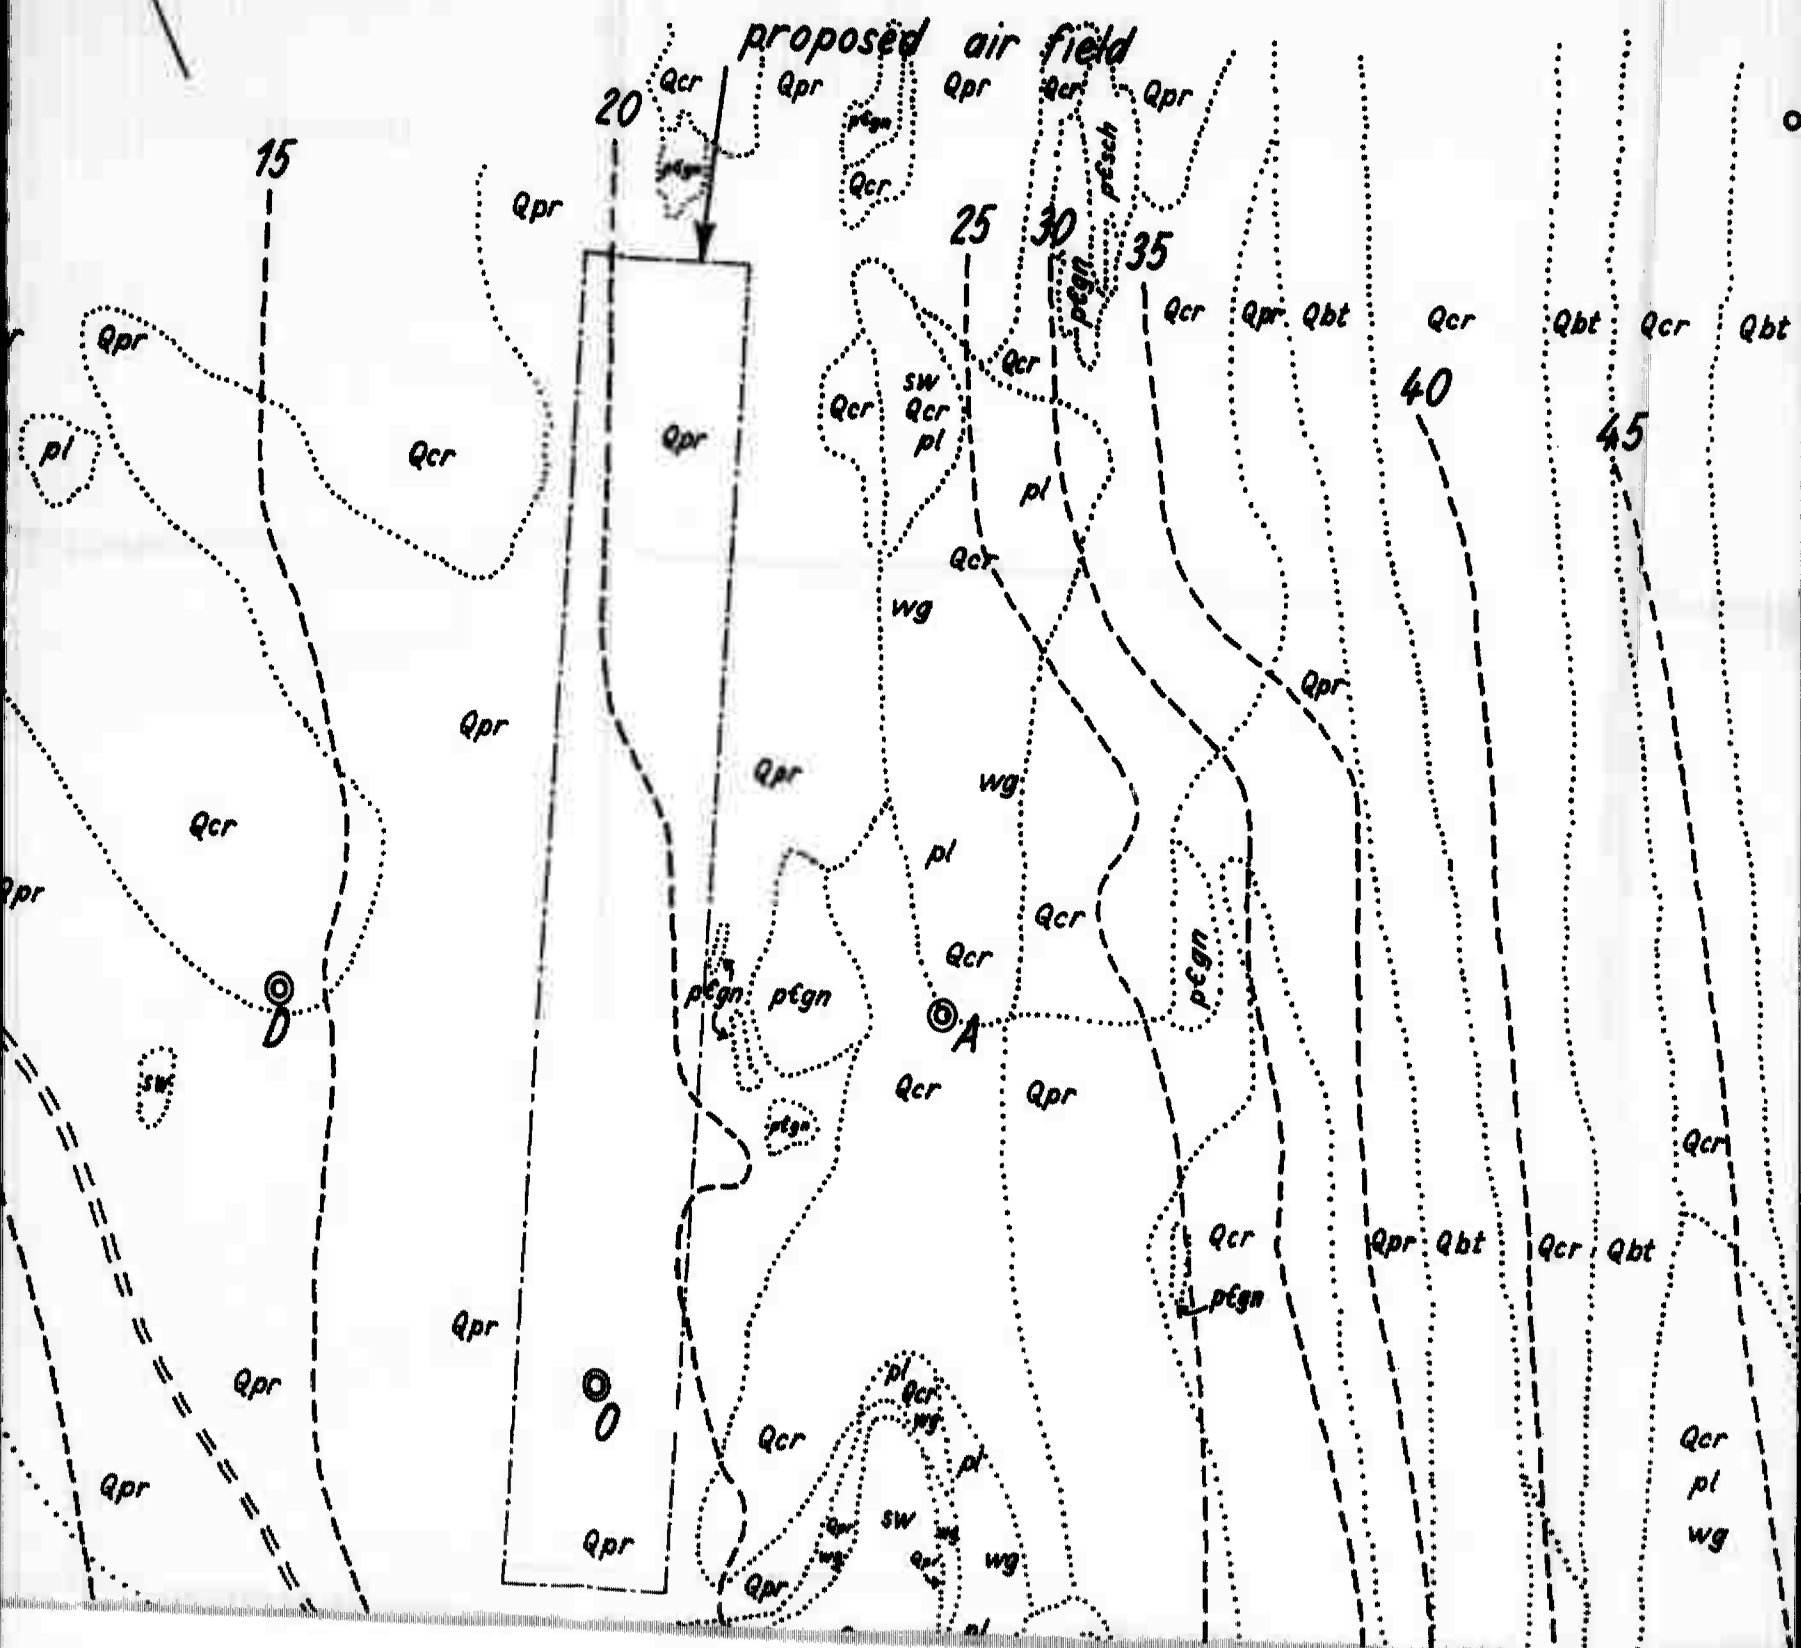 proposed air field
Qcr
Qpr
Qpr
Qcr
Qpr
20
p€gn
15
p€gn
p€sch
Qcr
Qpr
25
30
35
p€gn
Qpr
Qcr
Qpr
Qbt
Qcr
Qbt
Qcr
Qbt
Qcr
40
sw
Qcr
Qcr
pl
45
pl
Qcr
Qpr
pl
Qcr
wg
Qpr
Qpr
Qpr
wg
Qcr
pl
Qpr
Qcr
Qcr
p€gn
p€gn
p€gn
D
A
sw
Qcr
Qpr
p€gn
Qcr
Qcr
Qpr
Qbt
Qcr
Qbt
p€gn
Qpr
Qpr
pl
Qcr
wg
O
Qcr
pl
Qcr
pl
wg
Qpr
Qpr
sw
wg
Qpr
wg
Qpr
wg
Qpr
pl